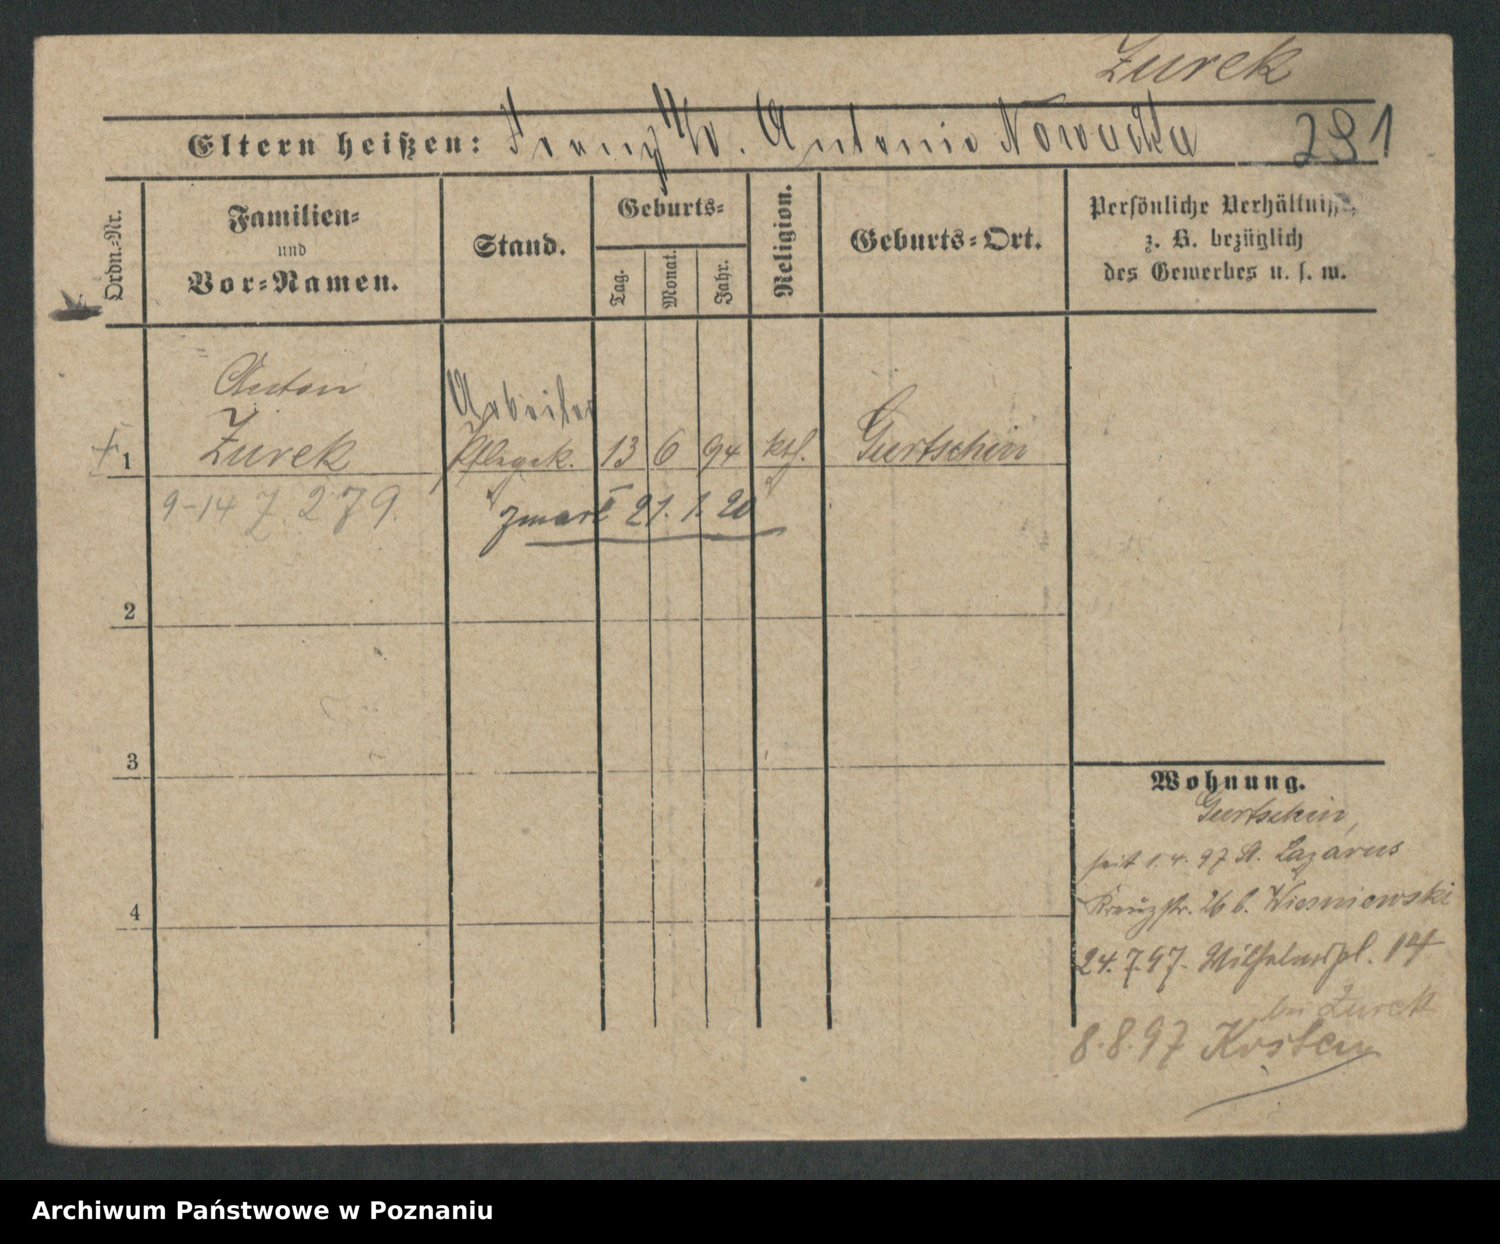 Zurek
Eltern heißen: Franz u. Antonie Nowacka 291
Ordn.-Nr.
Familien-
und
Vor-Namen.
Stand.
Geburts-
Tag.
Monat.
Jahr.
Religion.
Geburts-Ort.
Persönliche Verhältnisse,
z. B. bezüglich
des Gewerbes u. s. w.
Anton
Arbeiter
1 Zurek Pflegek. 13 6 94 kth. Gurtschin
9-14 Z. 279.
zmarł 21. 1. 20
2
3
4
Wohnung.
Gurtschin,
seit 1. 4. 97 St. Lazarus
Kreuzstr. 26 b. Wiesniewski
24. 7. 97. Wilhelmspl. 14
bei Zurek
8. 8. 97 Kosten
Archiwum Państwowe w Poznaniu